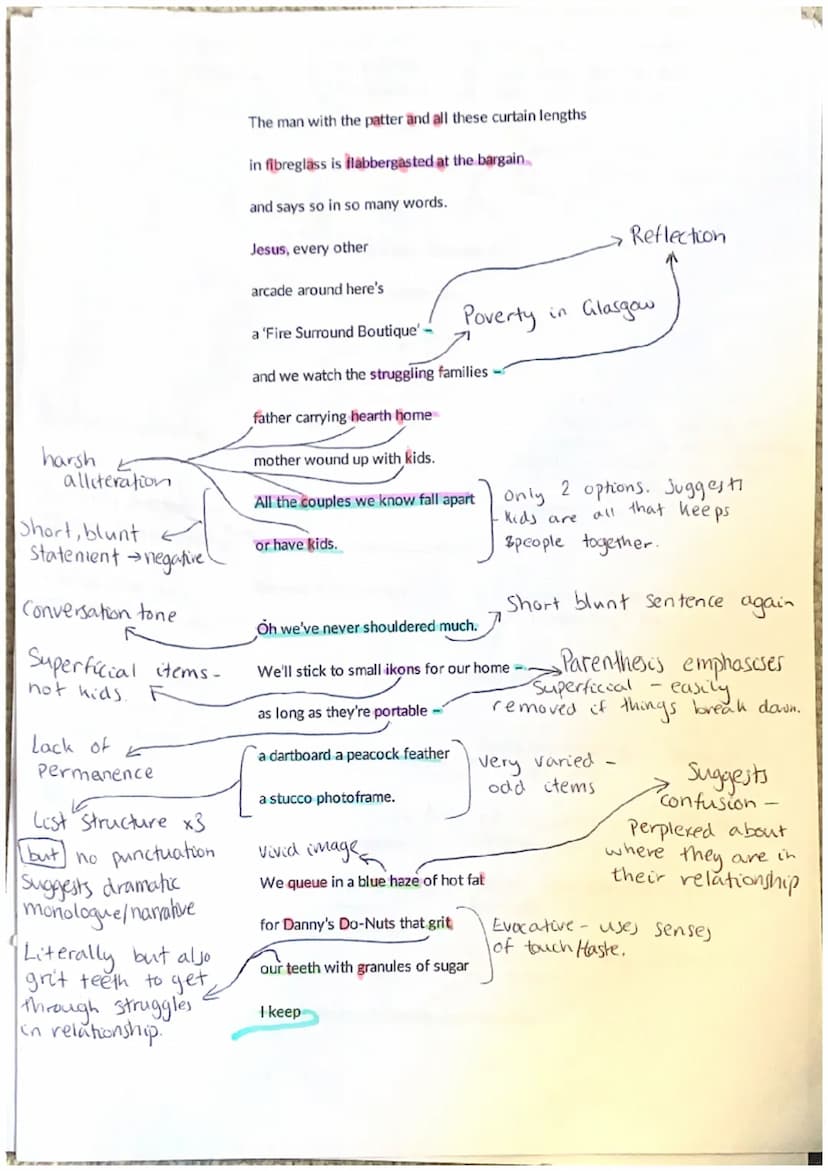 The man with the patter and all these curtain lengths
in fibreglass is flabbergasted at the bargain,
and says so in so many words.
Jesus, every other
arcade around here's
a 'Fire Surround Boutique' –
and we watch the struggling families –
father carrying hearth home
mother wound up with kids.
All the couples we know fall apart
or have kids.
Oh we've never shouldered much.
We'll stick to small ikons for our home –
as long as they're portable –
a dartboard a peacock feather
a stucco photoframe.
We queue in a blue haze of hot fat
for Danny's Do-Nuts that grit
our teeth with granules of sugar
I keep
Reflection
Poverty in Glasgow
harsh
alliteration
Short, blunt
statement → negative
Only 2 options. Suggests
kids are all that keeps
people together.
Conversation tone
Short blunt sentence again
Superficial items -
not kids.
Parenthesis emphascises
superficial - easily
removed if things break down.
Lack of
permanence
very varied -
odd items
List structure x3
but no punctuation
suggests dramatic
monologue/narrative
Vivid image
Suggests
confusion -
perplexed about
where they are in
their relationship
Evocative - uses senses
of touch/taste.
Literally but also
grit teeth to get
through struggles
in relationship.